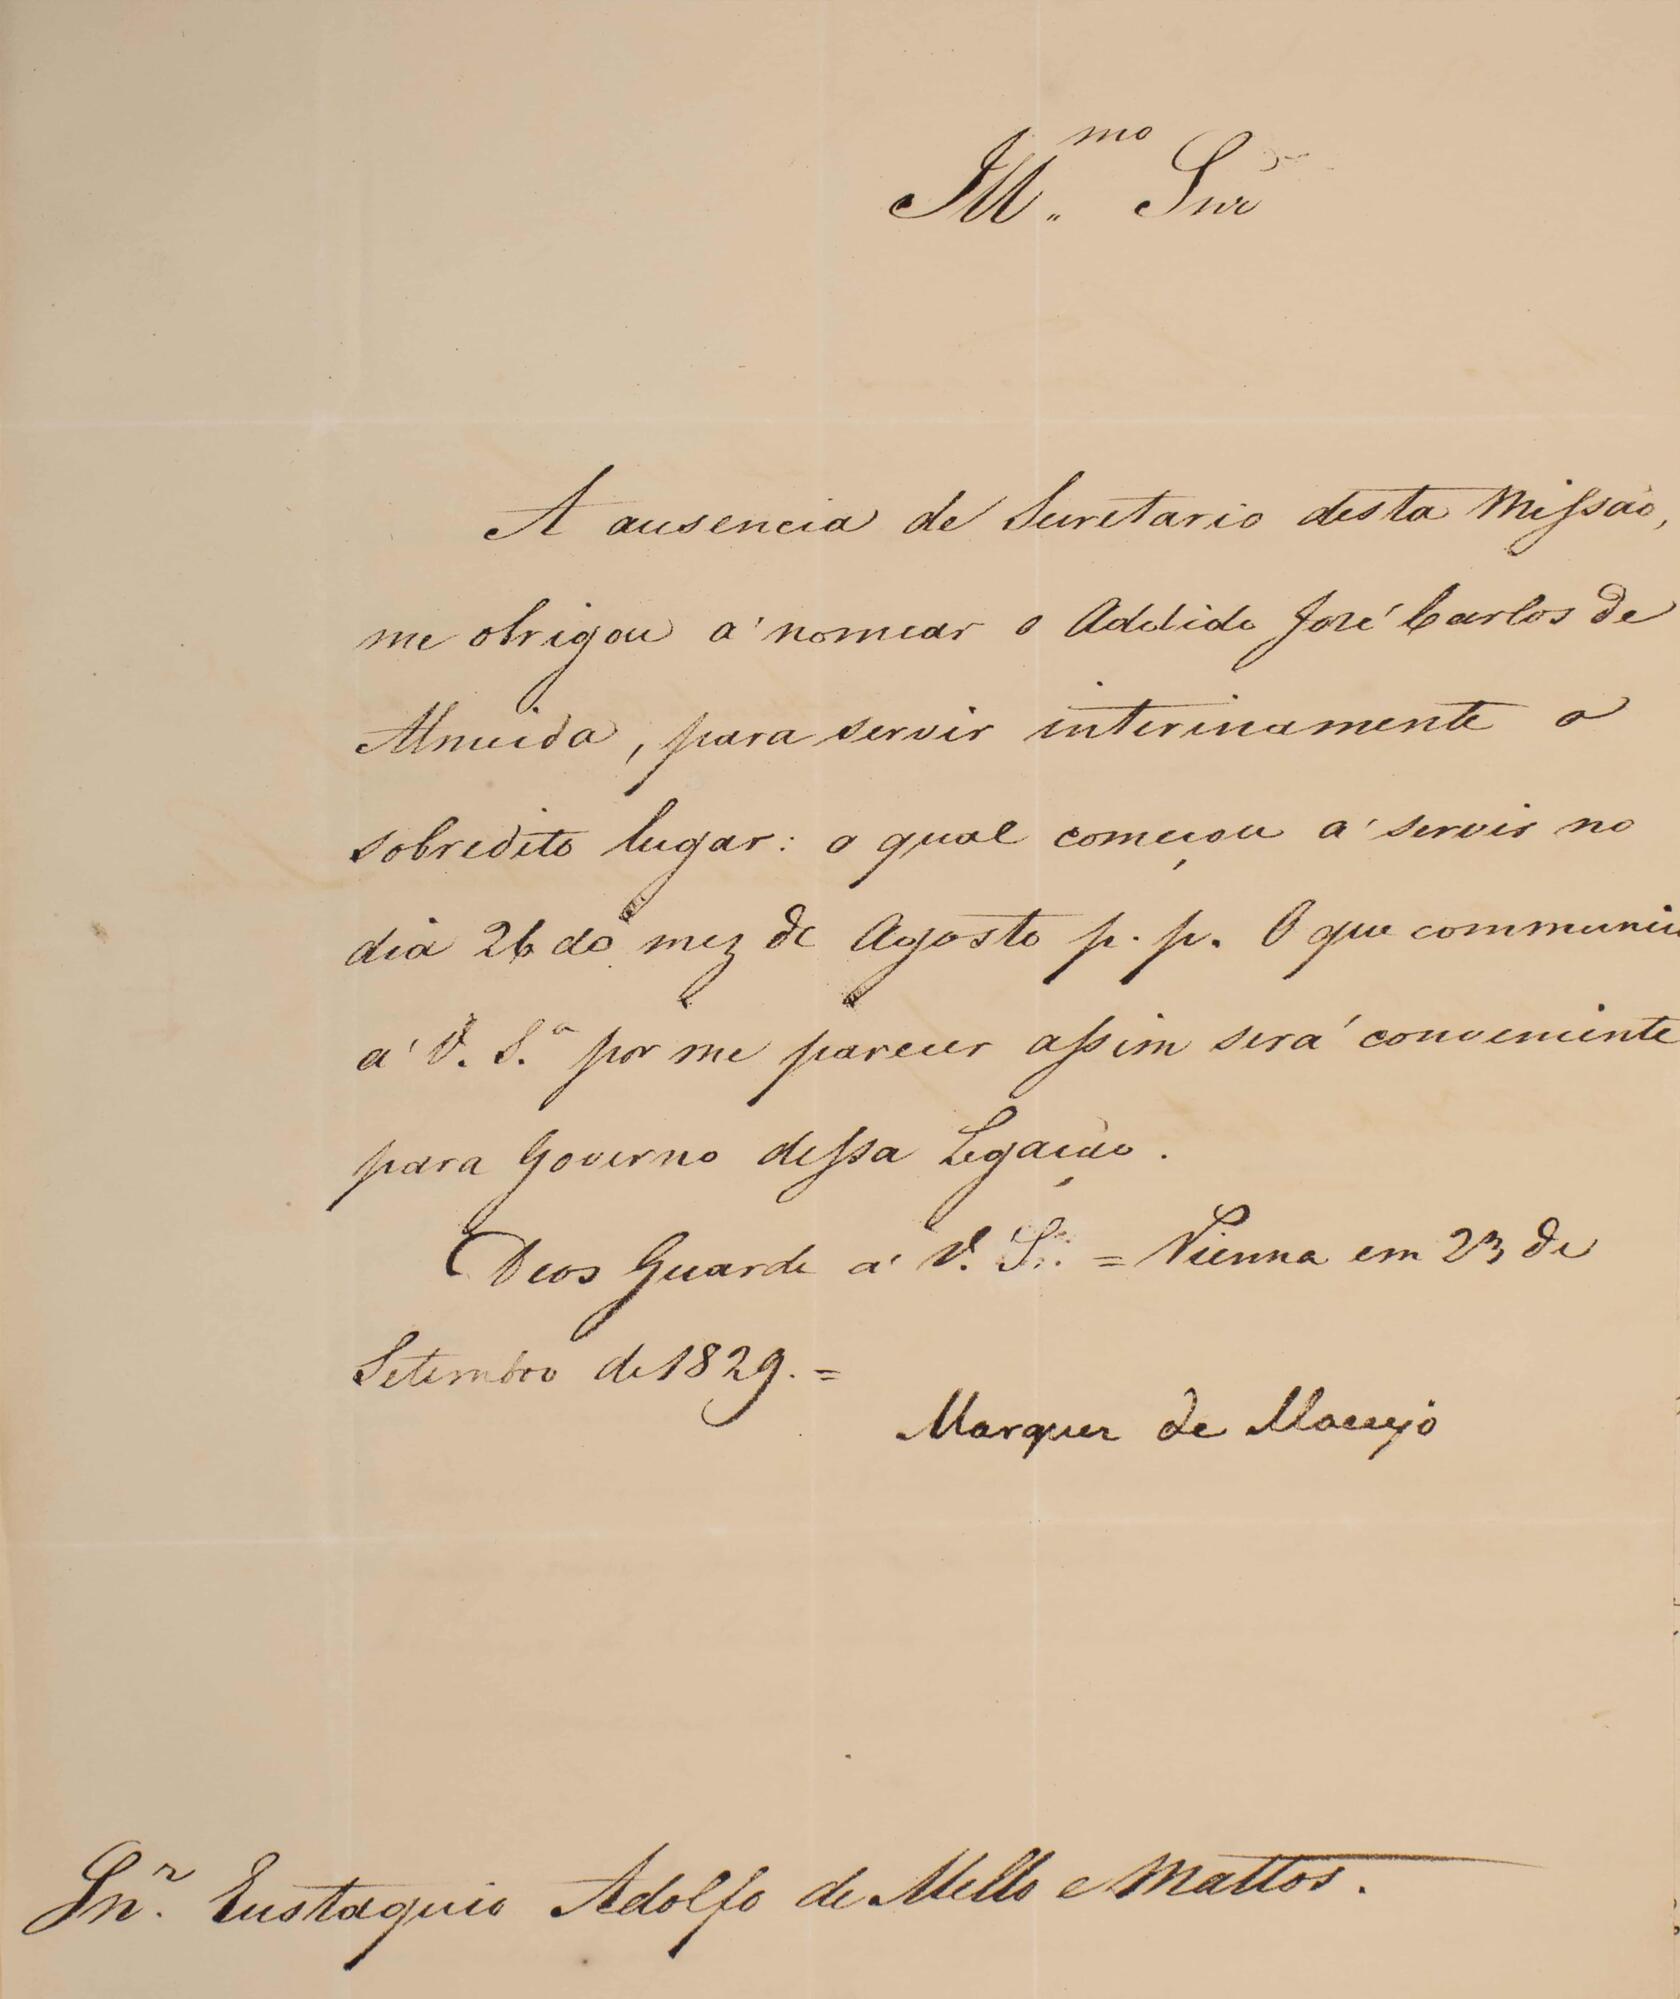 Ill.mo Snr
A ausencia de Secretario desta Missão,
me obrigou a' nomear o Addido José Carlos de
Almeida, para servir interinamente o
sobredito lugar: o qual começou a' servir no
dia 26 do mez de Agosto p. p. O que communi
a' V. S.a por me parecer assim será conveniente
para Governo dessa Legação.
Deos Guarde a' V. S.a = Vienna em 23 de
Setembro de 1829. =
Marquez de Maceyó
Snr. Eustaquio Adolfo de Mello e Mattos.